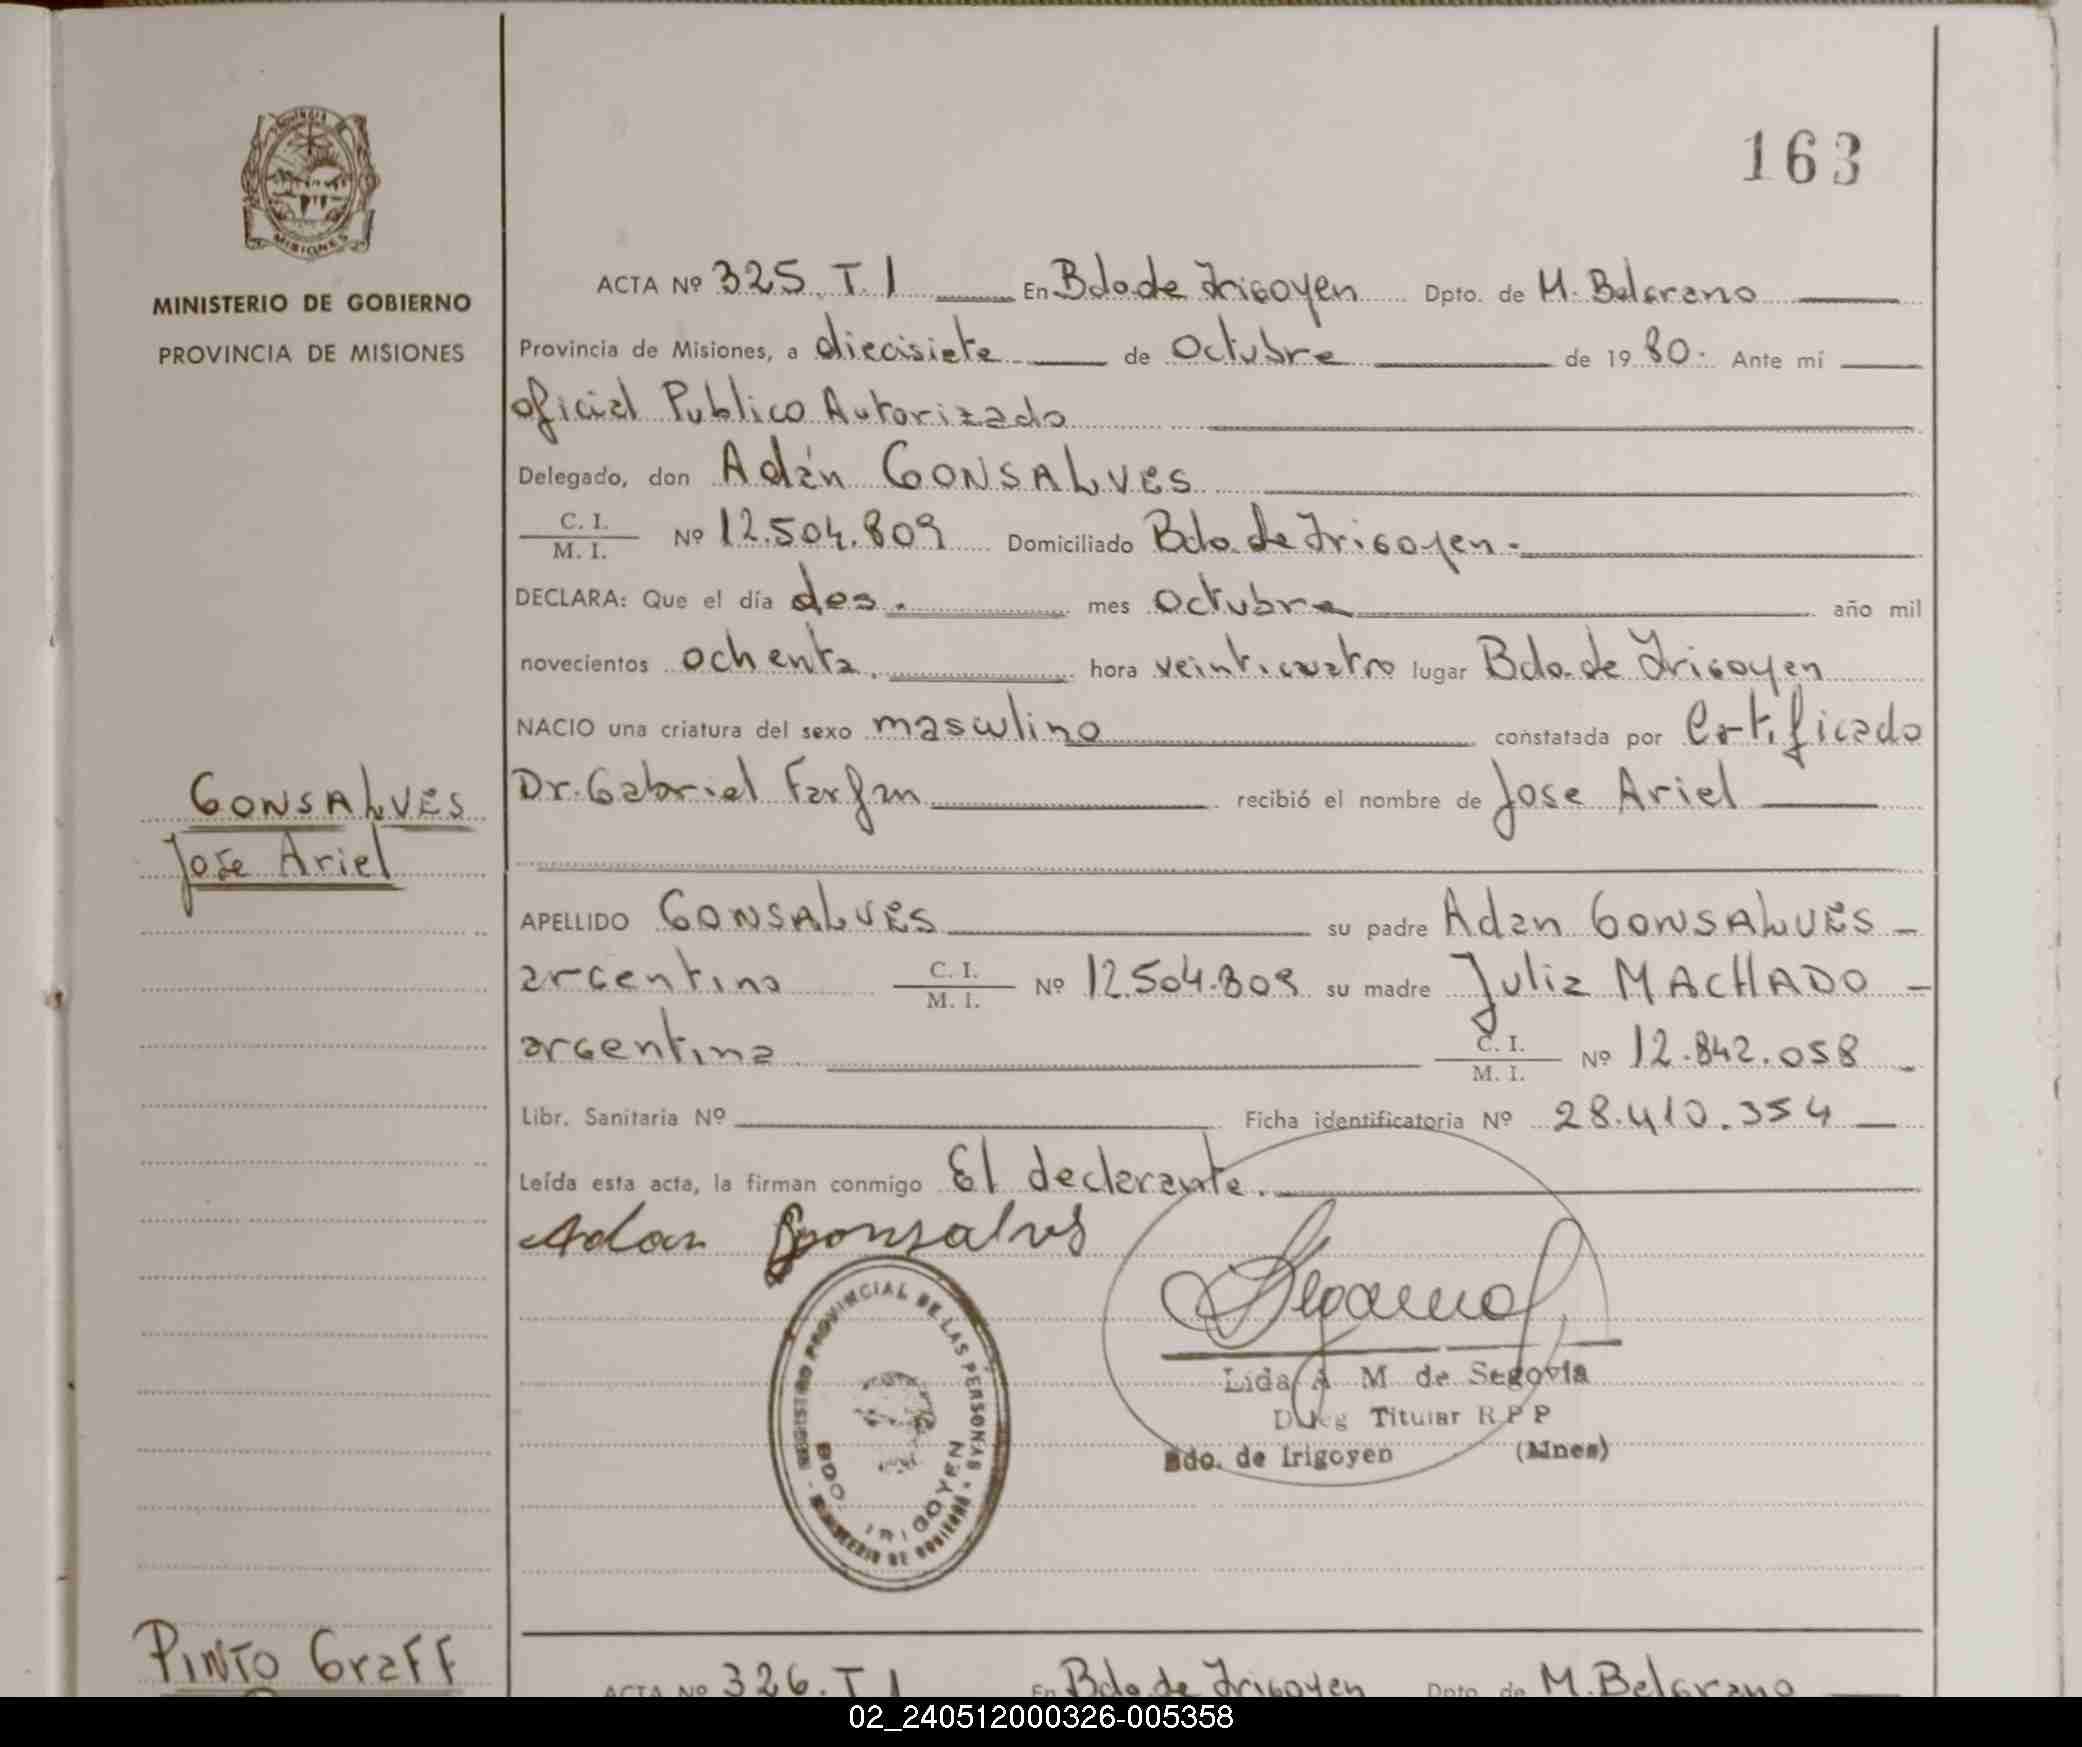 163
MINISTERIO DE GOBIERNO
PROVINCIA DE MISIONES
ACTA Nº 325. T. I En Bdo de Irigoyen Dpto. de M. Belgrano
Provincia de Misiones, a diecisiete de Octubre de 19 80. Ante mí
oficial Publico Autorizado
Delegado, don Adán GONSALVES
C. I. / M. I. Nº 12.504.809 Domiciliado Bdo. de Irigoyen.
DECLARA: Que el día dos. mes Octubre año mil
novecientos ochenta. hora veinticuatro lugar Bdo. de Irigoyen
NACIO una criatura del sexo masculino constatada por Certificado
Dr. Gabriel Farfan recibió el nombre de Jose Ariel
GONSALVES
Jose Ariel
APELLIDO GONSALVES su padre Adan GONSALVES -
argentino C. I. / M. I. Nº 12.504.809 su madre Julia MACHADO -
argentina C. I. / M. I. Nº 12.842.058
Libr. Sanitaria Nº Ficha identificatoria Nº 28.410.354
Leída esta acta, la firman conmigo El declarante.
Adan Gonsalves
REGISTRO PROVINCIAL DE LAS PERSONAS
MINISTERIO DE GOBIERNO
BDO. IRIGOYEN
Lida A M de Segovia
Deleg Titular R P P
Bdo. de Irigoyen (Mnes)
PINTO Graff
ACTA Nº 326. T I En Bdo de Irigoyen Dpto. de M. Belgrano
02_240512000326-005358